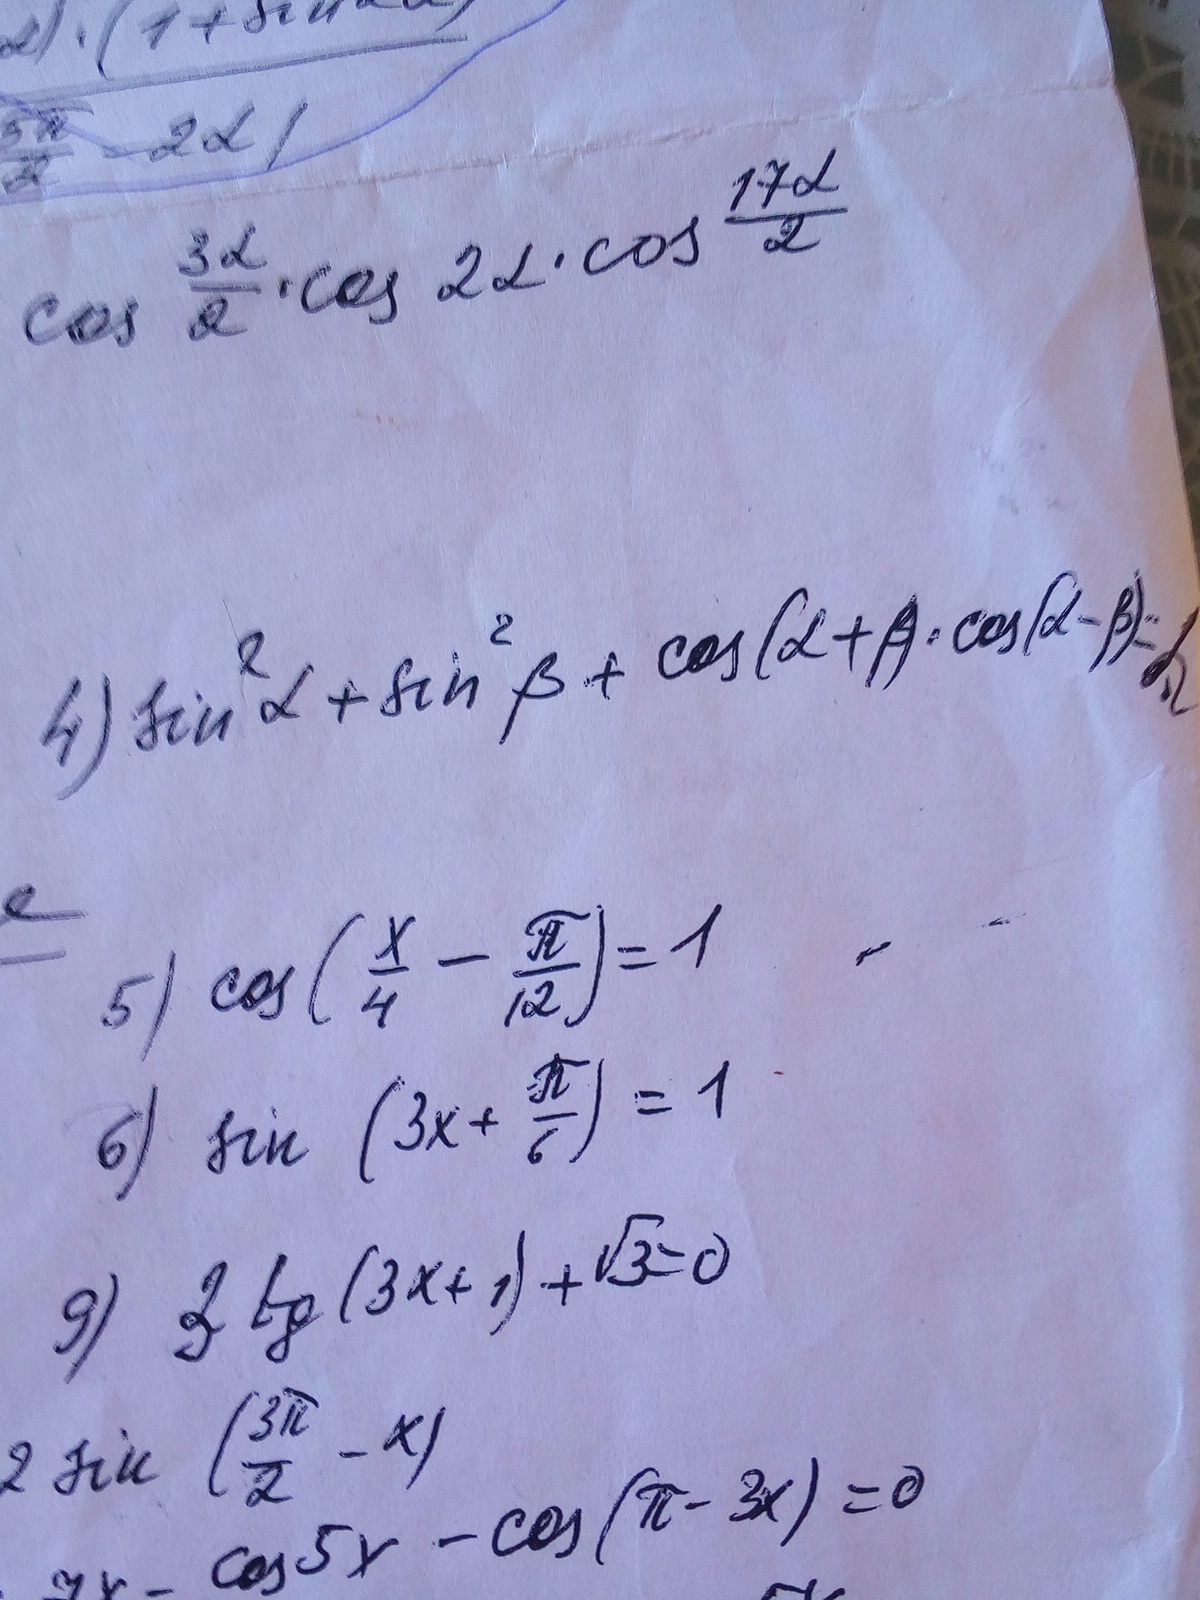 α) · (1 + sin 2α)
3π/2 - 2α)
cos 3α/2 · cos 2α · cos 17α/2
4) sin²α + sin²β + cos(α + β) · cos(α - β) =
5) cos(x/4 - π/12) = 1
6) sin (3x + π/6) = 1
9) 3 tg (3x + 1) + √3 = 0
2 sin (3π/2 - x)
7x - cos 5x - cos(π - 3x) = 0
5x